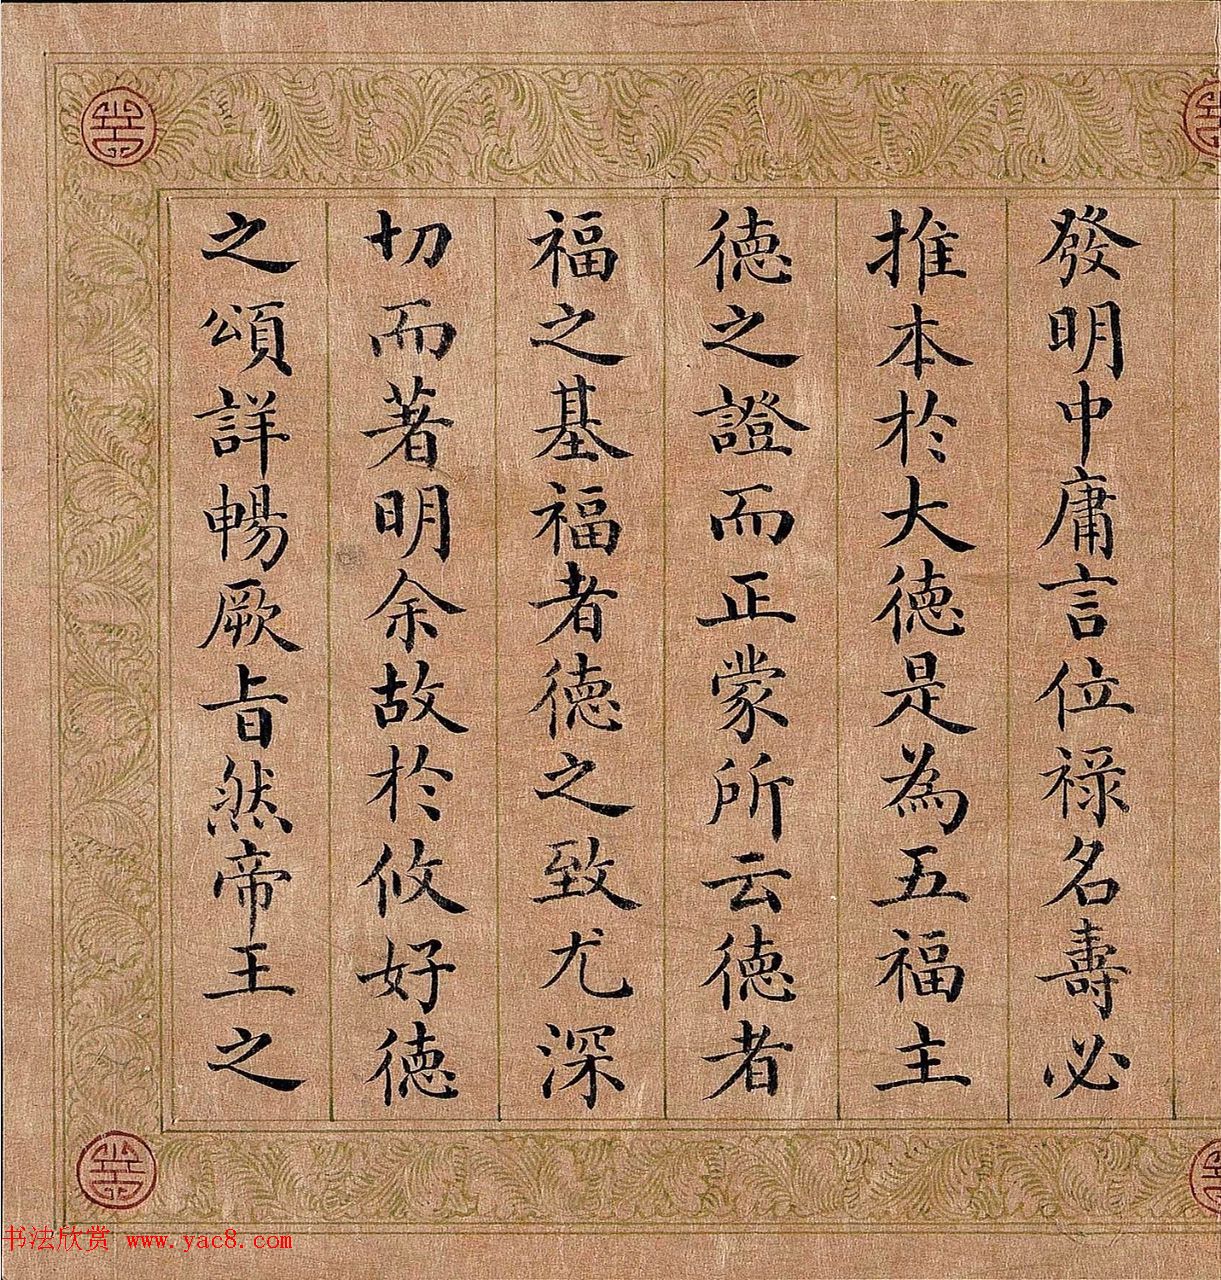 發明中庸言位祿名壽必
推本於大德是為五福主
德之證而正蒙所云德者
福之基福者德之致尤深
切而著明余故於攸好德
之頌詳暢厥旨然帝王之
书法欣赏 www.yac8.com